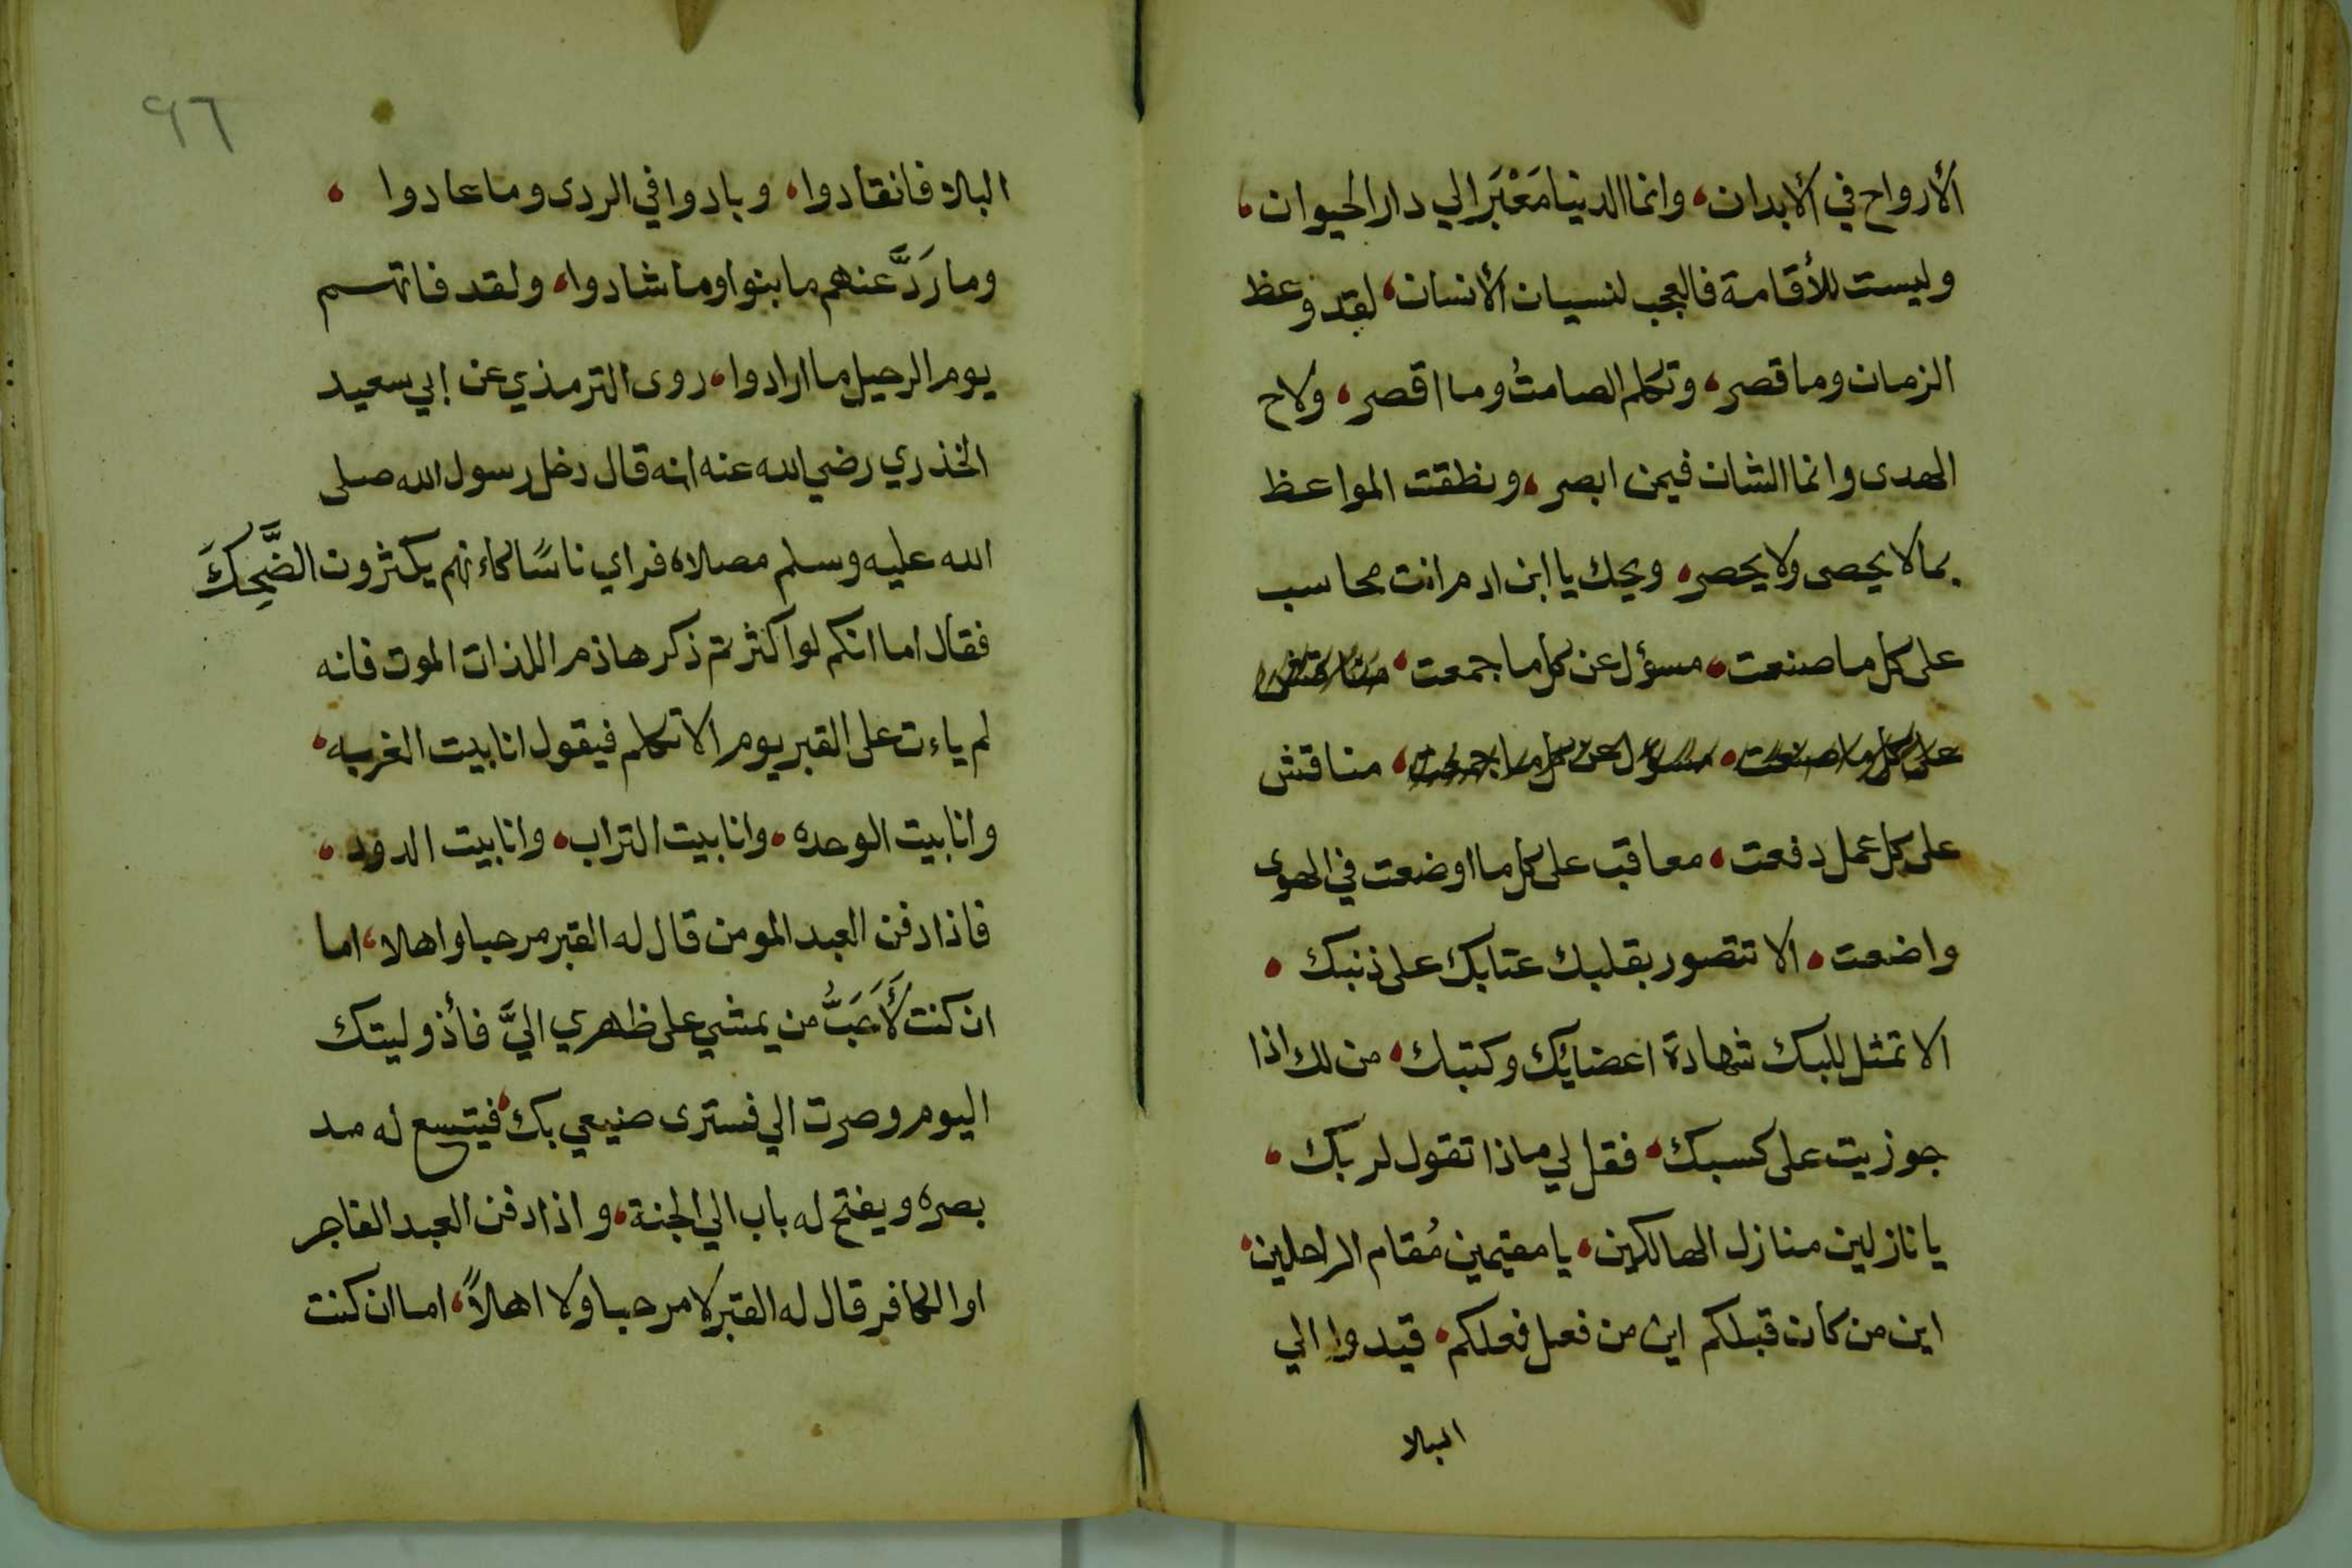 الأرواح في الأبدان، وانما الدنيا مَعْبَر الي دار الحيوان،
وليست للأقامة فالعجب لنسيان الأنسان، لقد وعظ
الزمان وما قصر، وتكلم الصامتُ وما اقصر، ولاح
الهدى وانما الشان فيمن ابصر، ونطقت المواعظ
بما لا يحصى ولا يحصر، ويحك يا ابن ادم انت محاسب
على كل ما صنعت، مسؤل عن كل ما جمعت، مناقش
على كل ما صنعت، مسؤل عن كل ما جمعت، مناقش
على كل عمل دفعت، معاقب على كل ما اوضعت في الهوى
واضعت، الا تتصور بقلبك عتابك على ذنبك،
الا تمثل للبك شهادة اعضايك وكتبك، من لك اذا
جوزيت على كسبك، فقل لي ماذا تقول لربك،
يا نازلين منازل الهالكين، يا مقيمين مُقام الراحلين،
اين من كان قبلكم اين من فعل فعلكم، قيدوا الي
البلا
٩٦
البلا فانقادوا، وبادوا في الردى وما عادوا،
وما رَدَّ عنهم ما بنوا وما شادوا، ولقد فاتهم
يوم الرحيل ما ارادوا، روى الترمذي عن ابي سعيد
الخذري رضي الله عنه انه قال دخل رسول الله صلى
الله عليه وسلم مصلاه فراي ناسًا كاءنهم يكثرون الضَّحِكَ
فقال اما انكم لو اكثرتم ذكر هاذم اللذات الموت فانه
لم ياءت على القبر يوم الا تكلم فيقول انا بيت الغربه،
وانا بيت الوحده، وانا بيت التراب، وانا بيت الدود،
فاذا دفن العبد المومن قال له القبر مرحبا واهلا، اما
ان كنت لَأَحَبُّ من يمشي على ظهري اليَّ فأذ وليتك
اليوم وصرت الي فسترى صنيعي بك، فيتسع له مد
بصره ويفتح له باب الي الجنة، واذا دفن العبد الفاجر
اوا الكافر قال له القبر لا مرحبا ولا اهلاً، اما ان كنت